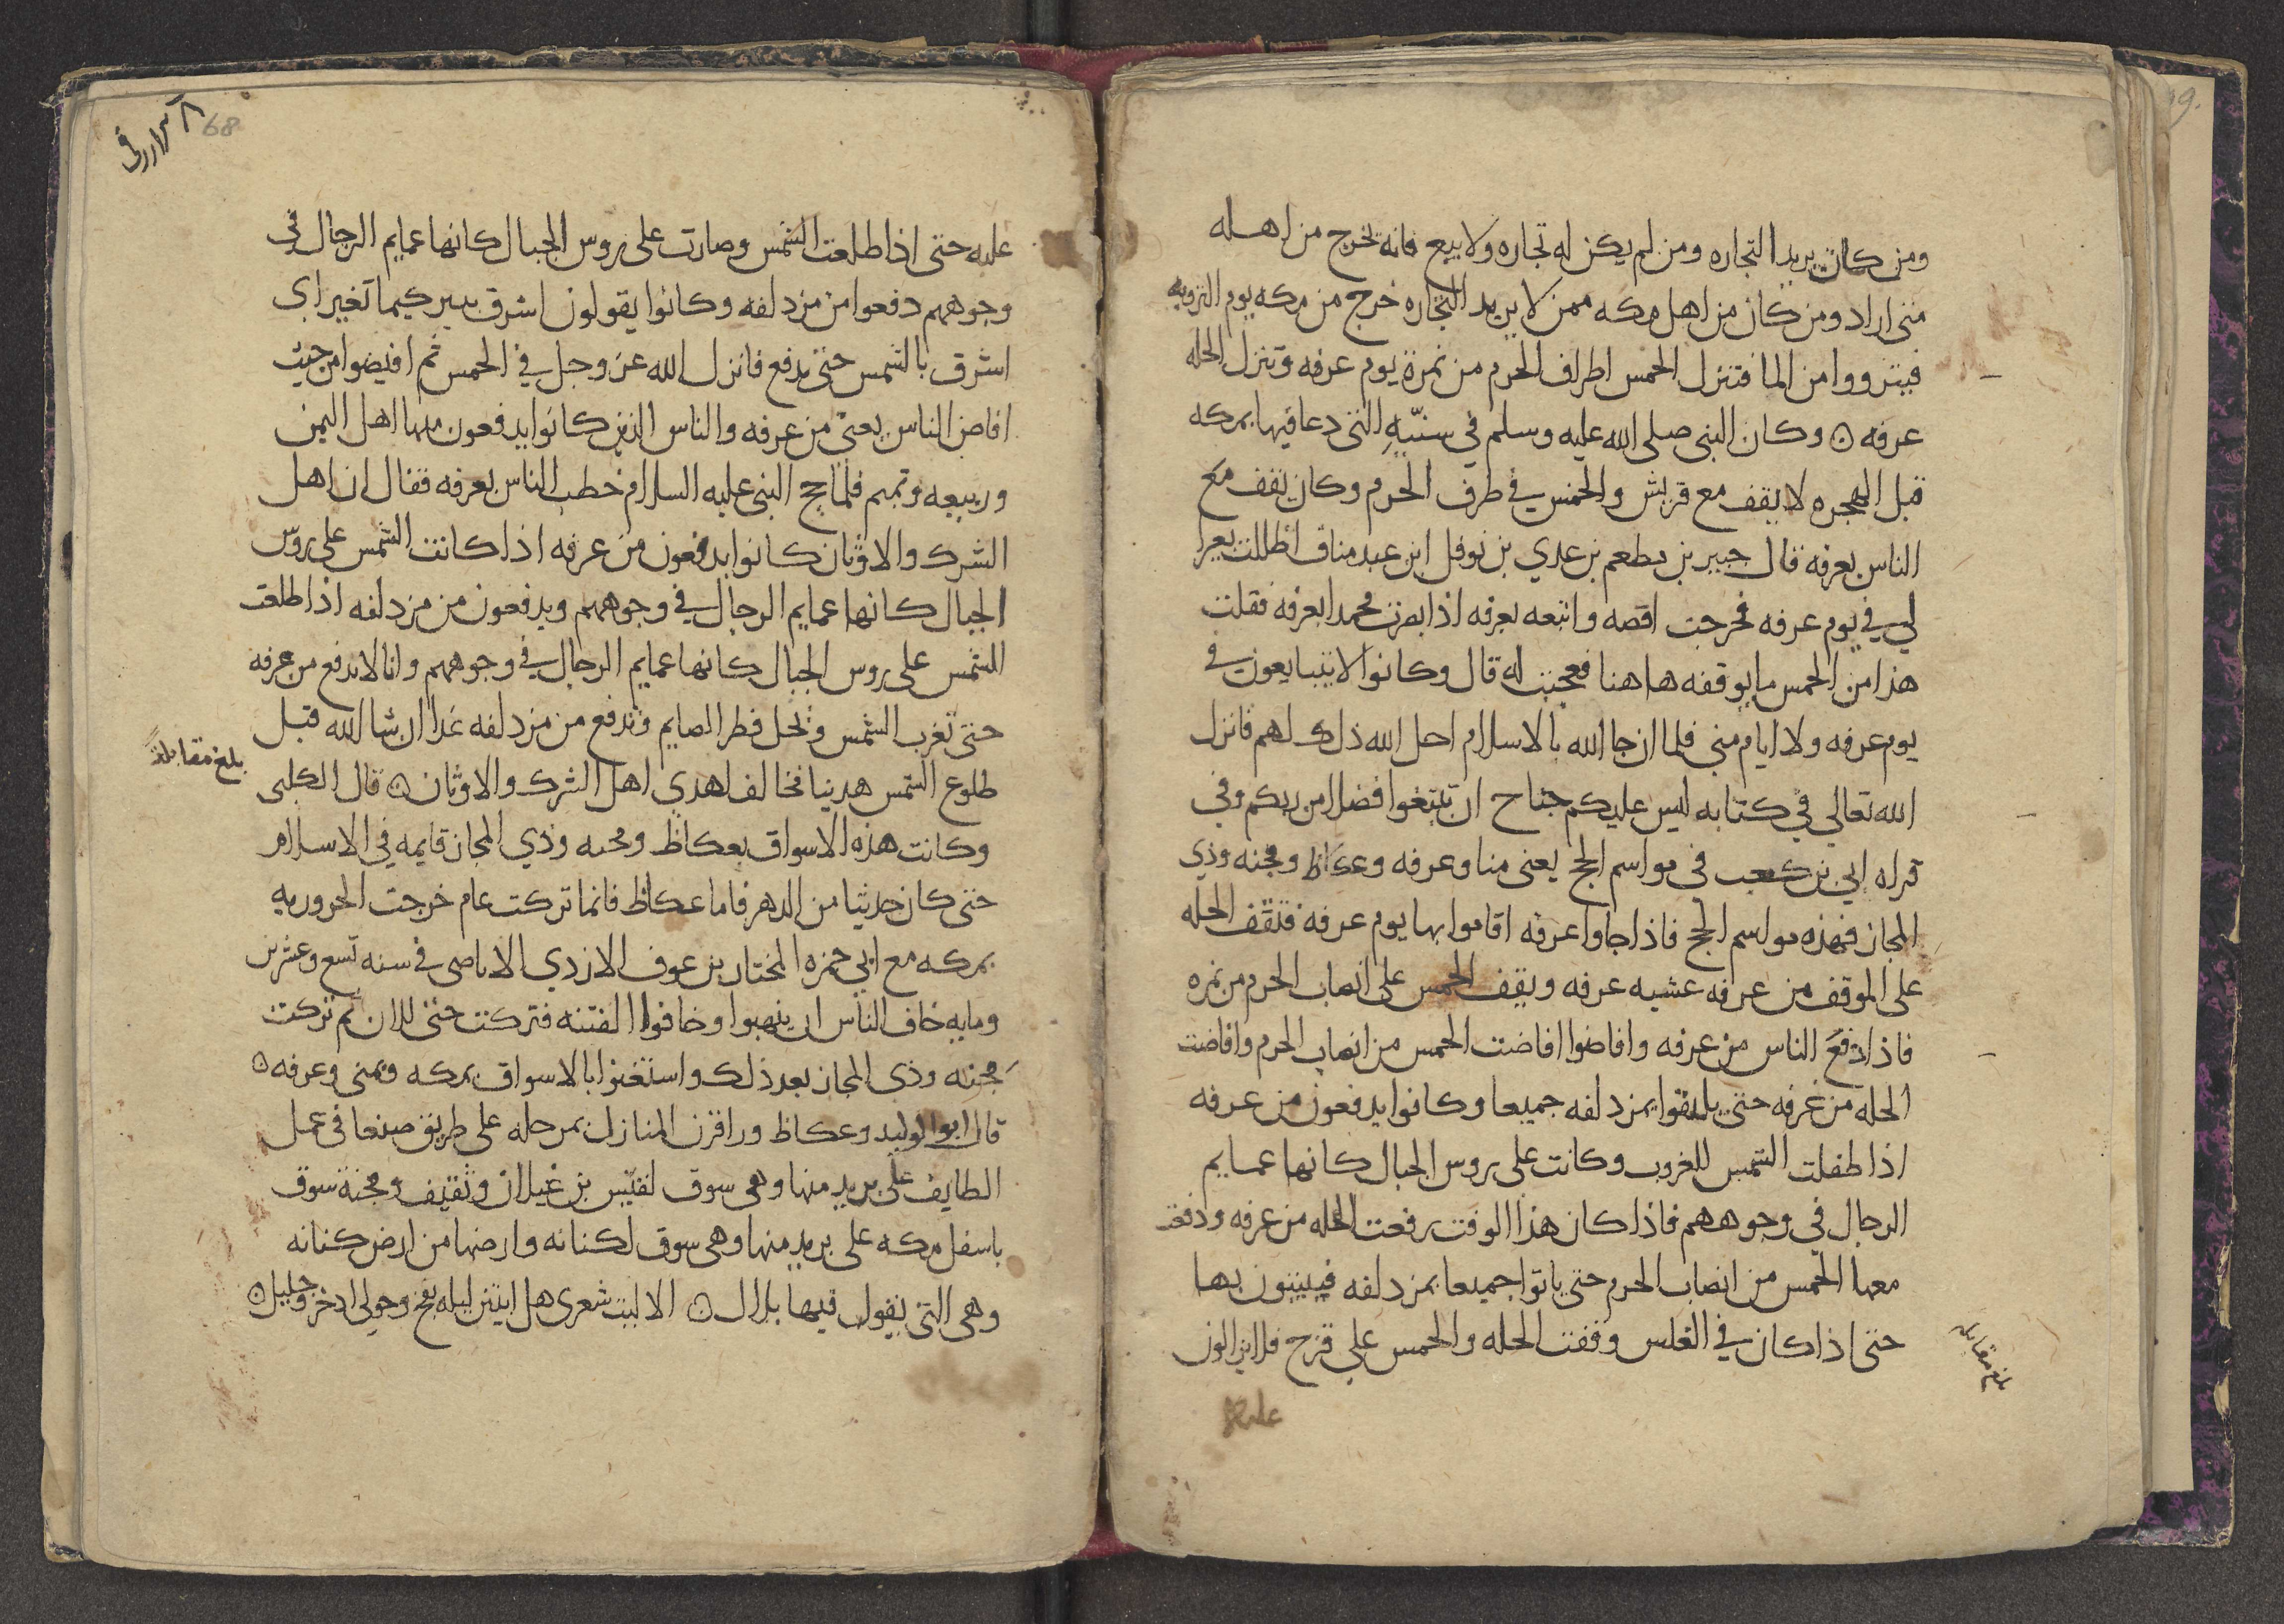 ومن كان يريد التجاره ومن لم يكن له تجاره ولا بيع فانه يخرج من اهله
متى اراد ومن كان من اهل مكه ممن لا يريد التجاره خرج من مكه يوم الترويه
فيترووا من الما فتنزل الحمس اطراف الحرم من نمرة يوم عرفه وتنزل الحله
عرفه ۞ وكان النبي صلى الله عليه وسلم في سنيّه التي دعا فيها بمكه
قبل الهجره لا يقف مع قريش والحمس في طرف الحرم وكان يقف مع
الناس بعرفه قال جبير بن مطعم بن عدي بن نوفل ابن عبد مناف اظللت بعيرا
لي في يوم عرفه فخرجت اقصه واتبعه بعرفه اذ ابصرت محمدا بعرفه فقلت
هذا من الحمس ما يوقفه هاهنا فعجبت له قال وكانوا لا يتبايعون في
يوم عرفه ولا ايام منى فلما ان جا الله بالاسلام احل الله ذلك لهم فانزل
الله تعالي في كتابه ليس عليكم جناح ان تبتغوا فضلا من ربكم وفي
قراه ابي بن كعب في مواسم الحج يعنى منا وعرفه وعكاظ ومجنه وذي
المجاز فهذه مواسم الحج فاذا جاوا عرفه اقاموا بها يوم عرفه فتقف الحله
على الموقف من عرفه عشيه عرفه ويقف الحمس على انصاب الحرم من نمره
فاذا دفع الناس من عرفه وافاضوا افاضت الحمس من انصاب الحرم وافاضت
الحله من عرفه حتى يلتقوا بمزدلفه جميعا وكانوا يدفعون من عرفه
اذا طفلت الشمس للغروب وكانت على روس الجبال كانها عمايم
الرجال في وجوههم فاذا كان هذا الوقت رفعت الحله من عرفه ودفعت
معها الحمس من انصاب الحرم حتى ياتوا جميعا بمزدلفه فيبيتون بها
حتى اذا كان في الغلس وقفت الحله والحمس على قزح فلا يزالون
عليه
68
عليه حتى اذا طلعت الشمس وصارت على روس الجبال كانها عمايم الرجال في
وجوههم دفعوا من مزدلفه وكانوا يقولون اشرق ثبير كيما تغير اي
اشرق بالشمس حتى ندفع فانزل الله عز وجل في الحمس ثم افيضوا من حيث
افاض الناس يعنى من عرفه والناس الذين كانوا يدفعون منها اهل اليمن
وربيعه وتميم فلما حج النبي عليه السلام خطب الناس بعرفه فقال ان اهل
الشرك والاوثان كانوا يدفعون من عرفه اذا كانت الشمس على روس
الجبال كانها عمايم الرجال في وجوههم ويدفعون من مزدلفه اذا طلعت
الشمس على روس الجبال كانها عمايم الرجال في وجوههم وانا لا ندفع من عرفه
حتى تغرب الشمس وتحل فطر الصايم وندفع من مزدلفه غدا ان شا الله قبل
طلوع الشمس هدينا مخالف لهدي اهل الشرك والاوثان ۞ قال الكلبى
بلغ مقابلة
وكانت هذه الاسواق بعكاظ ومجنه وذي المجاز قايمه في الاسلام
حتى كان حديثا من الدهر فاما عكاظ فانما تركت عام خرجت الحروريه
بمكه مع ابي حمزه المختار بن عوف الازدي الاباضى في سنه تسع وعشرين
ومايه خاف الناس ان ينهبوا وخافوا الفتنه فتركت حتى للان ثم تركت
مجنه وذي المجاز بعد ذلك واستغنوا بالاسواق بمكه وبمنى وعرفه ۞
قال ابو الوليد وعكاظ ورا قرن المنازل بمرحله على طريق صنعا في عمل
الطايف على بريد منها وهى سوق لقيس بن غيلان وثقيف ومجنة سوق
باسفل مكه على بريد منها وهى سوق لكنانه وارضها من ارض كنانه
وهى التي يقول فيها بلال ۞ الا ليت شعرى هل ابيتن ليله بفخ وحولي اذخر وجليل ۞